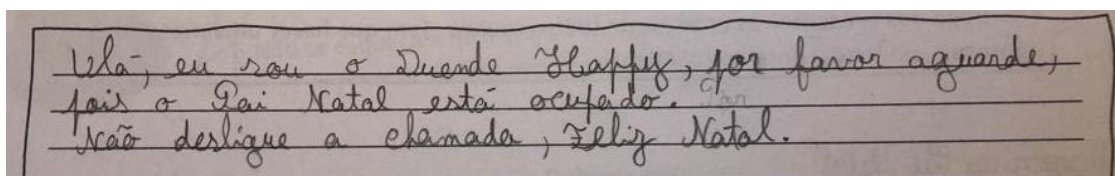 Olá, eu sou o Duende Happy, por favor aguarde,
pois o Pai Natal está ocupado.
Não desligue a chamada, Feliz Natal.